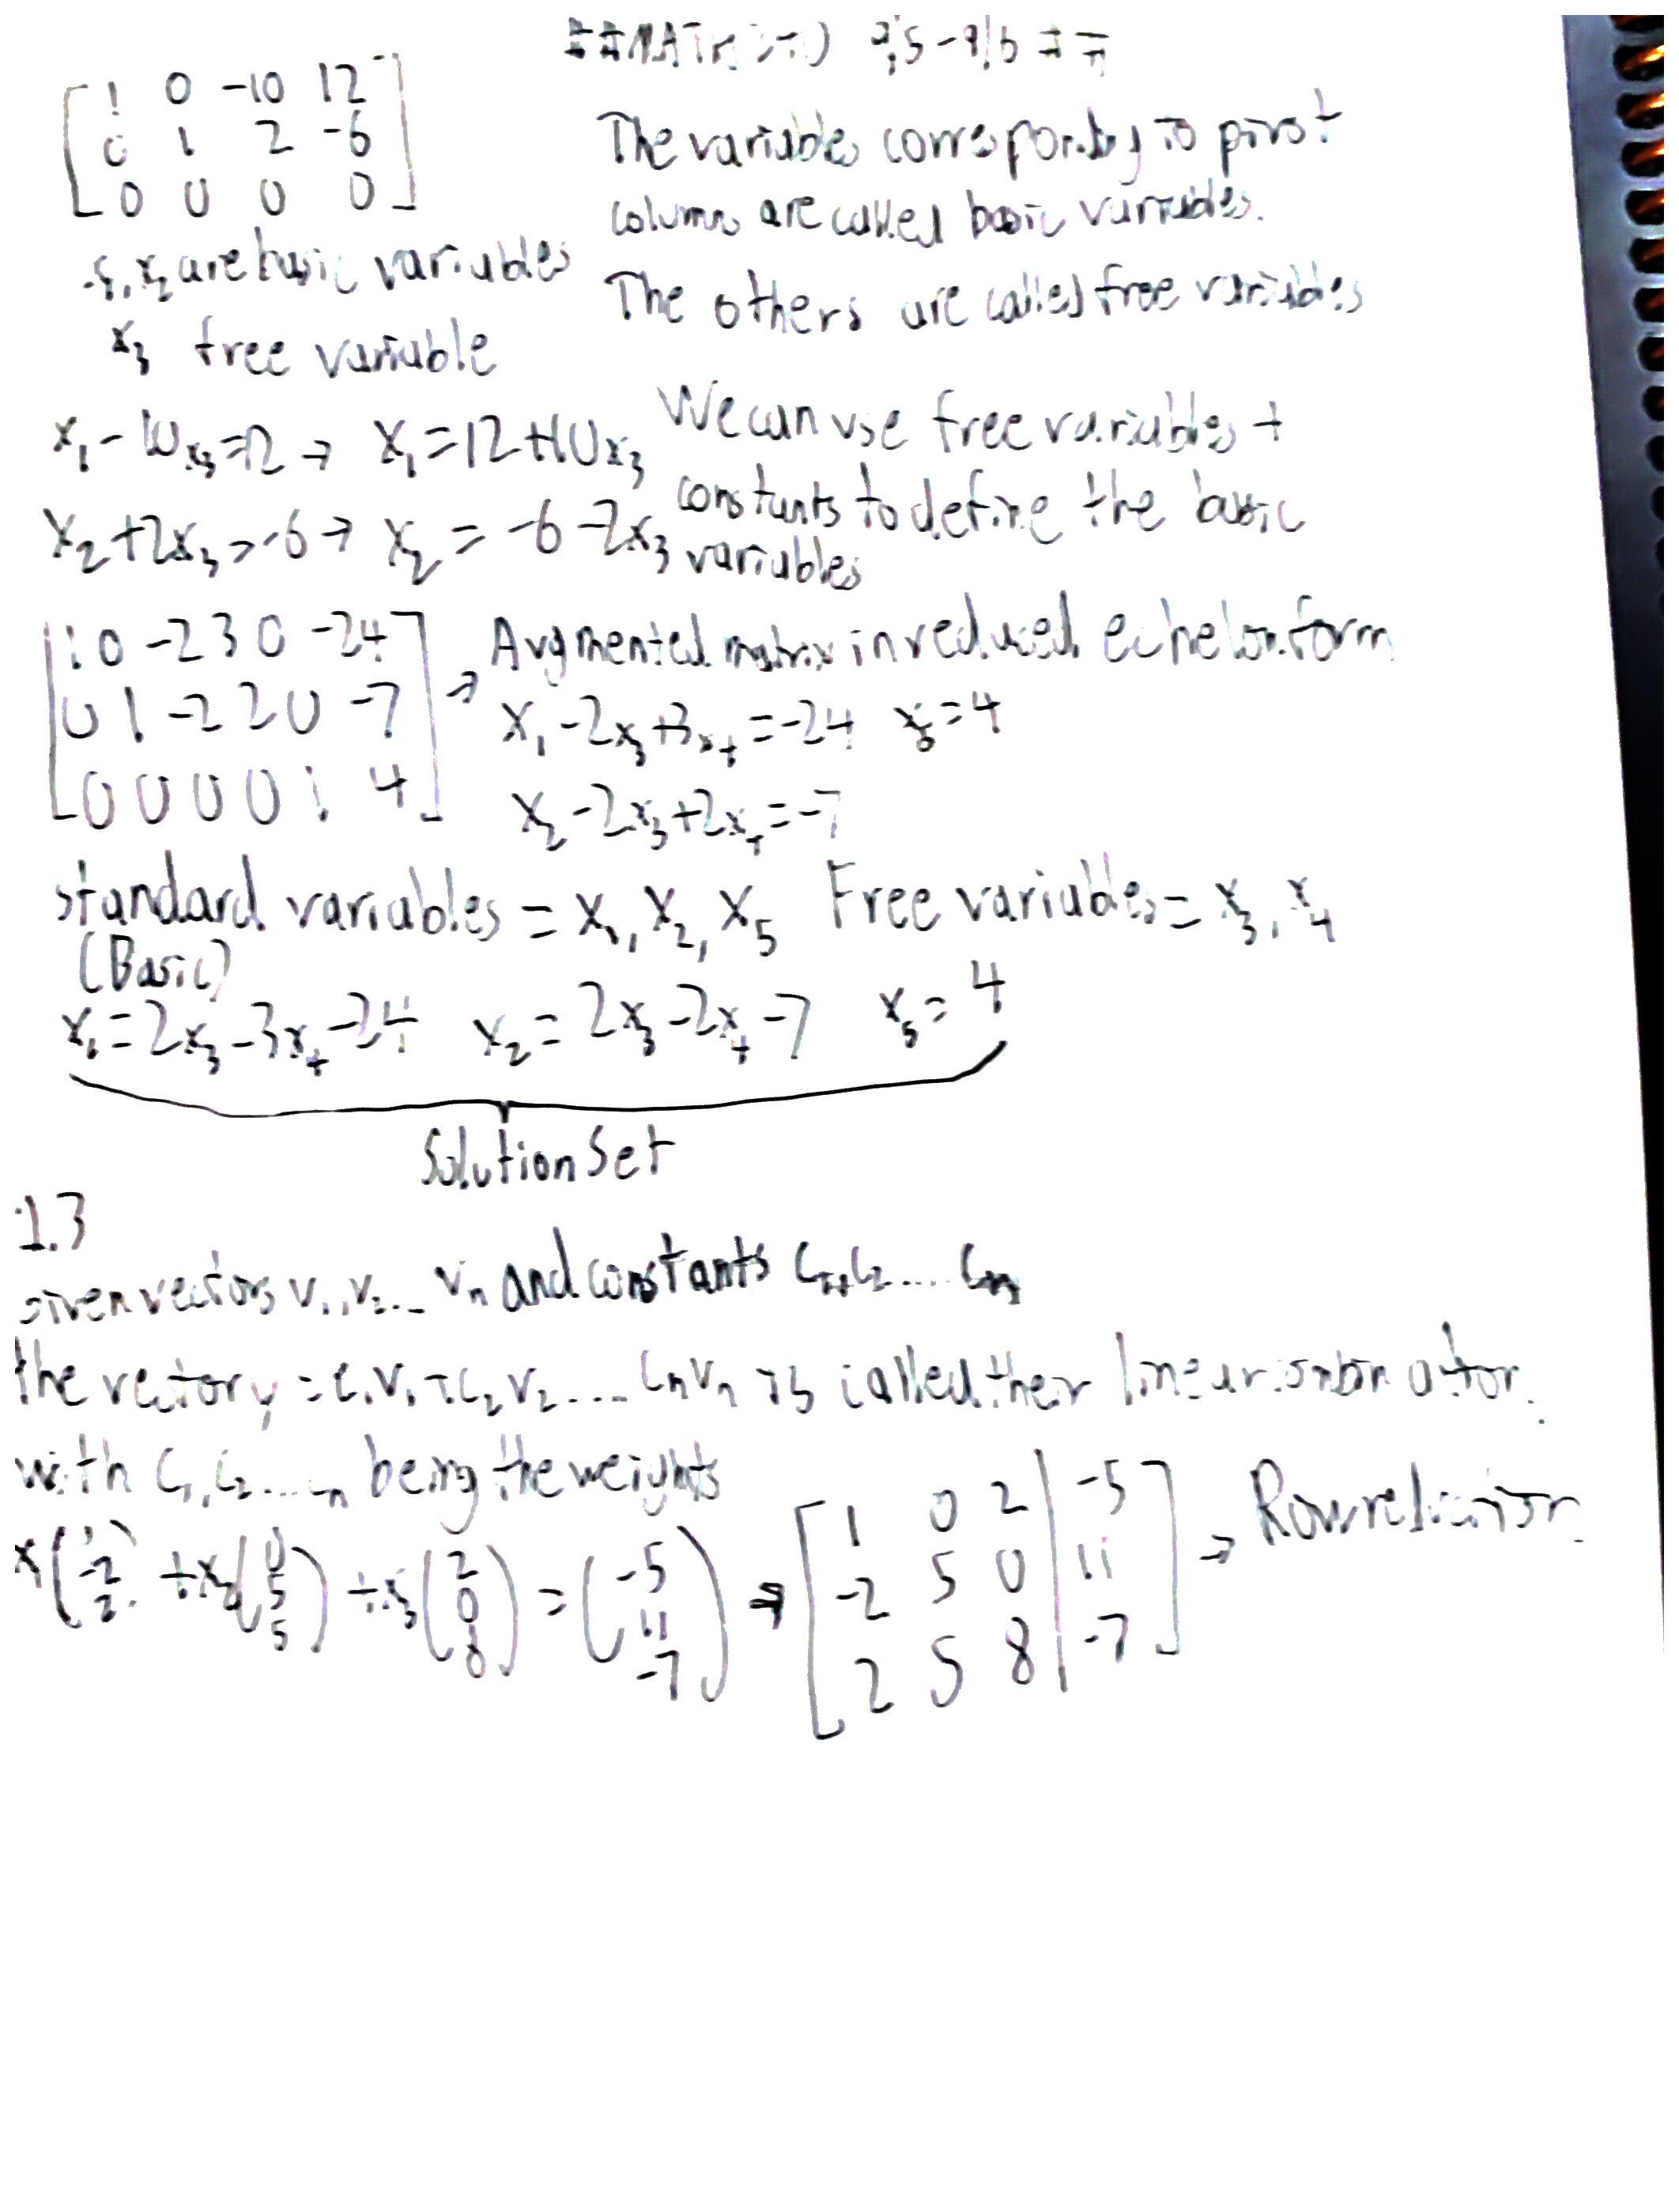 9/5-9/6
[1 0 -10 12]
[0 1 2 -6]
[0 0 0 0]
The variables corresponding to pivot
columns are called basic variables.
x₁, x₂ are basic variables
The others are called free variables
x₃ free variable
x₁-10x₃=12 → x₁=12+10x₃
x₂+2x₃=-6 → x₂=-6-2x₃
We can use free variables +
constants to define the basic
variables
[1 0 -2 3 0 -24]
[0 1 -2 2 0 -7]
[0 0 0 0 1 4]
→ Augmented matrix in reduced echelon form
x₁-2x₃+3x₄=-24 x₅=4
x₂-2x₃+2x₄=-7
standard variables = x₁, x₂, x₅ Free variables = x₃, x₄
(Basic)
x₁=2x₃-3x₄-24 x₂=2x₃-2x₄-7 x₅=4
Solution Set
1.3
given vectors v₁, v₂... vₙ and constants c₁, c₂.... cₙ
the vector y=c₁v₁+c₂v₂.... cₙvₙ is called their linear
with c₁, c₂.... cₙ being the weights
x₁(1 -2 2)+x₂(0 5 5)+x₃(2 0 8)=(-5 11 -7) →
[1 0 2 | -5]
[-2 5 0 | 11]
[2 5 8 | -7]
→ Row reduction